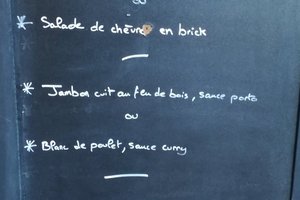 ou
* Salade de chèvre en brick
* Jambon cuit au feu de bois, sauce porto
ou
* Blanc de poulet, sauce curry